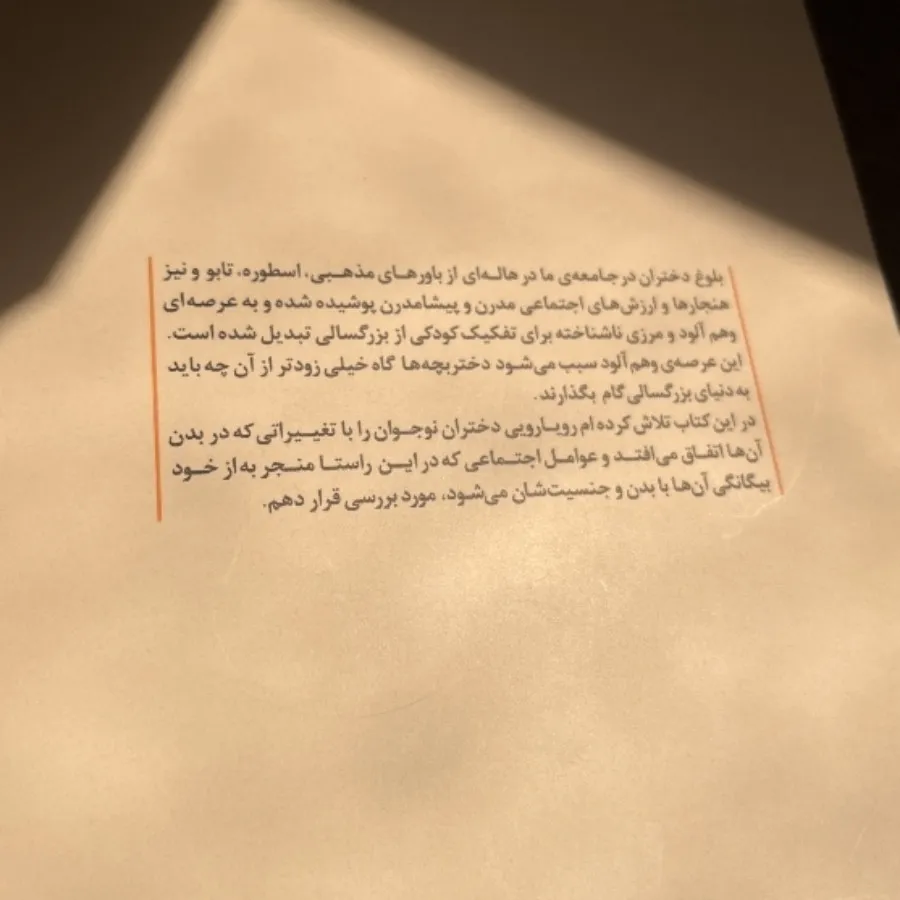 بلوغ دختران در جامعه‌ی ما در هاله‌ای از باورهای مذهبی، اسطوره، تابو و نیز
هنجارها و ارزش‌های اجتماعی مدرن و پیشامدرن پوشیده شده و به عرصه‌ای
وهم آلود و مرزی ناشناخته برای تفکیک کودکی از بزرگسالی تبدیل شده است.
این عرصه‌ی وهم آلود سبب می‌شود دختربچه‌ها گاه خیلی زودتر از آن چه باید
به دنیای بزرگسالی گام بگذارند.
در این کتاب تلاش کرده ام رویارویی دختران نوجوان را با تغییراتی که در بدن
آن‌ها اتفاق می‌افتد و عوامل اجتماعی که در این راستا منجر به از خود
بیگانگی آن‌ها با بدن و جنسیت‌شان می‌شود، مورد بررسی قرار دهم.